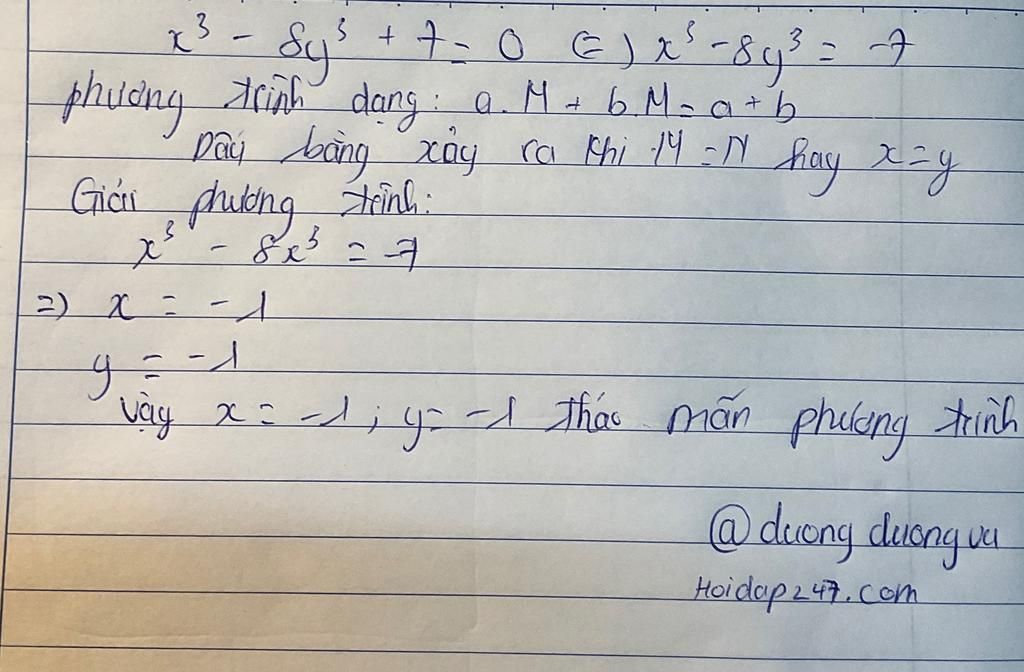 x³ - 8y³ + 7 = 0 (=) x³ - 8y³ = -7
phương trình dạng: a.M + b.M = a + b
Dấu bằng xảy ra khi M = N hay x = y
Giải phương trình:
x³ - 8x³ = -7
=) x = -1
y = -1
Vậy x = -1; y = -1 thảo mãn phương trình
@duong duong vu
Hoidap247.com